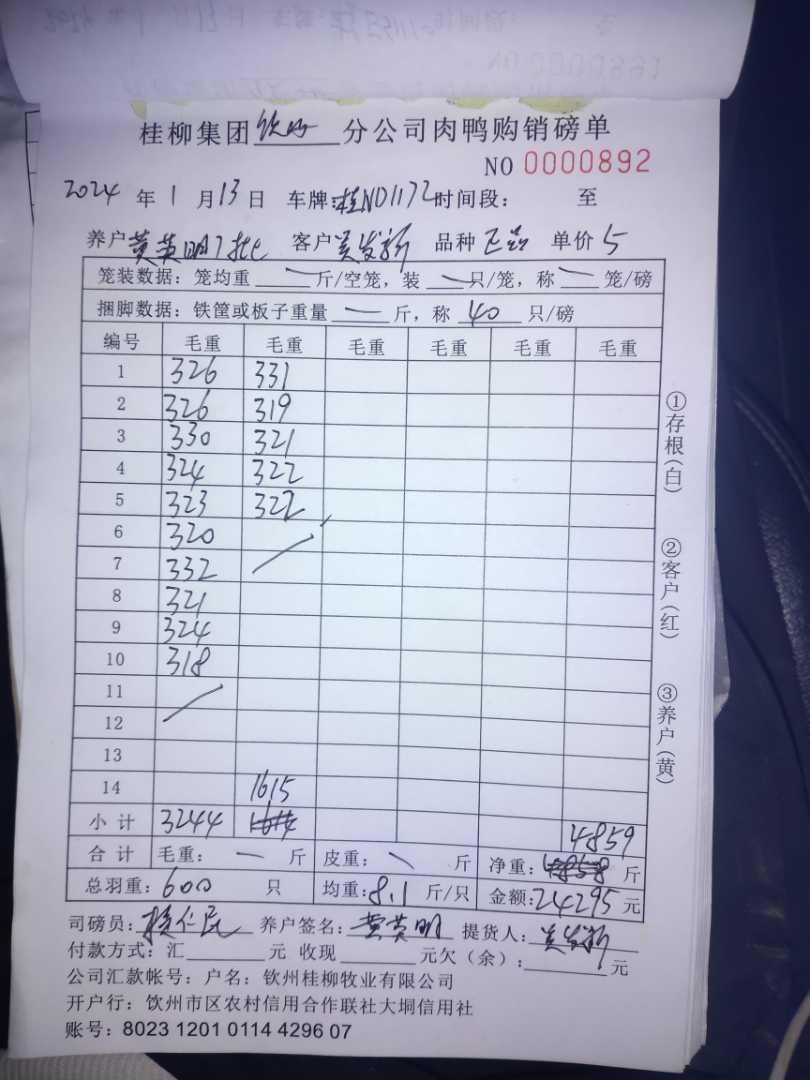 桂柳集团钦州分公司肉鸭购销磅单
NO 0000892
2024年1月13日 车牌:桂ND1172时间段: 至
养户黄英明7批 客户吴发新 品种正品 单价5
笼装数据:笼均重 一 斤/空笼,装 一 只/笼,称 一 笼/磅
捆脚数据:铁筐或板子重量 一 斤,称 40 只/磅
编号 毛重 毛重 毛重 毛重 毛重 毛重
1 326 331
2 326 319
3 330 321
4 324 322
5 323 322
6 320
7 332
8 321
9 324
10 318
11
12
13
14 1615
小计 3244 1614 4859
合计 毛重: 一 斤 皮重: 斤 净重:4858 斤
总羽重:600 只 均重:8.1 斤/只 金额:24295元
司磅员: 养户签名:黄英明 提货人:吴发新
付款方式:汇 元 收现 元欠(余): 元
公司汇款帐号:户名:钦州桂柳牧业有限公司
开户行:饮州市区农村信用合作联社大垌信用社
账号:8023 1201 0114 4296 07
①存根(白)
②客户(红)
③养户(黄)